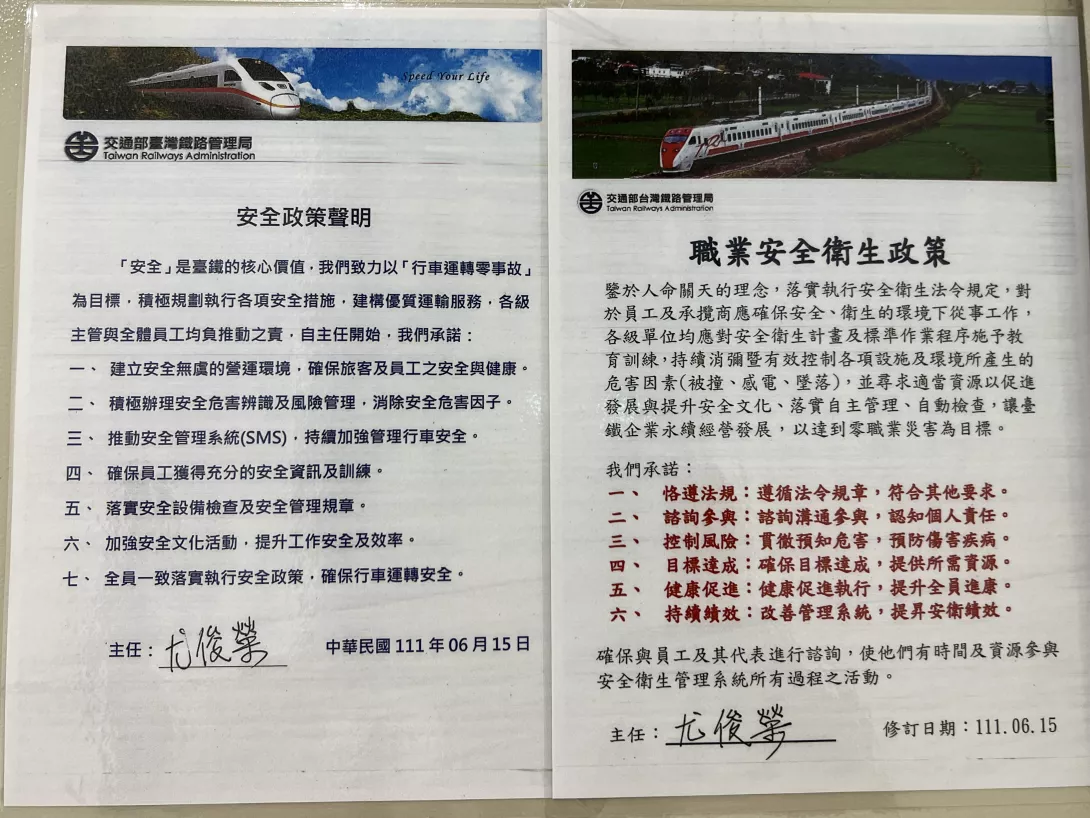 Speed Your Life
交通部臺灣鐵路管理局
Taiwan Railways Administration
安全政策聲明
「安全」是臺鐵的核心價值，我們致力以「行車運轉零事故」
為目標，積極規劃執行各項安全措施，建構優質運輸服務，各級
主管與全體員工均負推動之責，自主任開始，我們承諾：
一、 建立安全無虞的營運環境，確保旅客及員工之安全與健康。
二、 積極辦理安全危害辨識及風險管理，消除安全危害因子。
三、 推動安全管理系統(SMS)，持續加強管理行車安全。
四、 確保員工獲得充分的安全資訊及訓練。
五、 落實安全設備檢查及安全管理規章。
六、 加強安全文化活動，提升工作安全及效率。
七、 全員一致落實執行安全政策，確保行車運轉安全。
主任：尤俊榮 中華民國 111 年 06 月 15 日
交通部台灣鐵路管理局
Taiwan Railways Administration
職業安全衛生政策
鑒於人命關天的理念，落實執行安全衛生法令規定，對
於員工及承攬商應確保安全、衛生的環境下從事工作，
各級單位均應對安全衛生計畫及標準作業程序施予教
育訓練，持續消彌暨有效控制各項設施及環境所產生的
危害因素(被撞、感電、墜落)，並尋求適當資源以促進
發展與提升安全文化、落實自主管理、自動檢查，讓臺
鐵企業永續經營發展，以達到零職業災害為目標。
我們承諾：
一、 恪遵法規：遵循法令規章，符合其他要求。
二、 諮詢參與：諮詢溝通參與，認知個人責任。
三、 控制風險：貫徹預知危害，預防傷害疾病。
四、 目標達成：確保目標達成，提供所需資源。
五、 健康促進：健康促進執行，提升全員進康。
六、 持續績效：改善管理系統，提昇安衛績效。
確保與員工及其代表進行諮詢，使他們有時間及資源參與
安全衛生管理系統所有過程之活動。
主任：尤俊榮 修訂日期：111.06.15